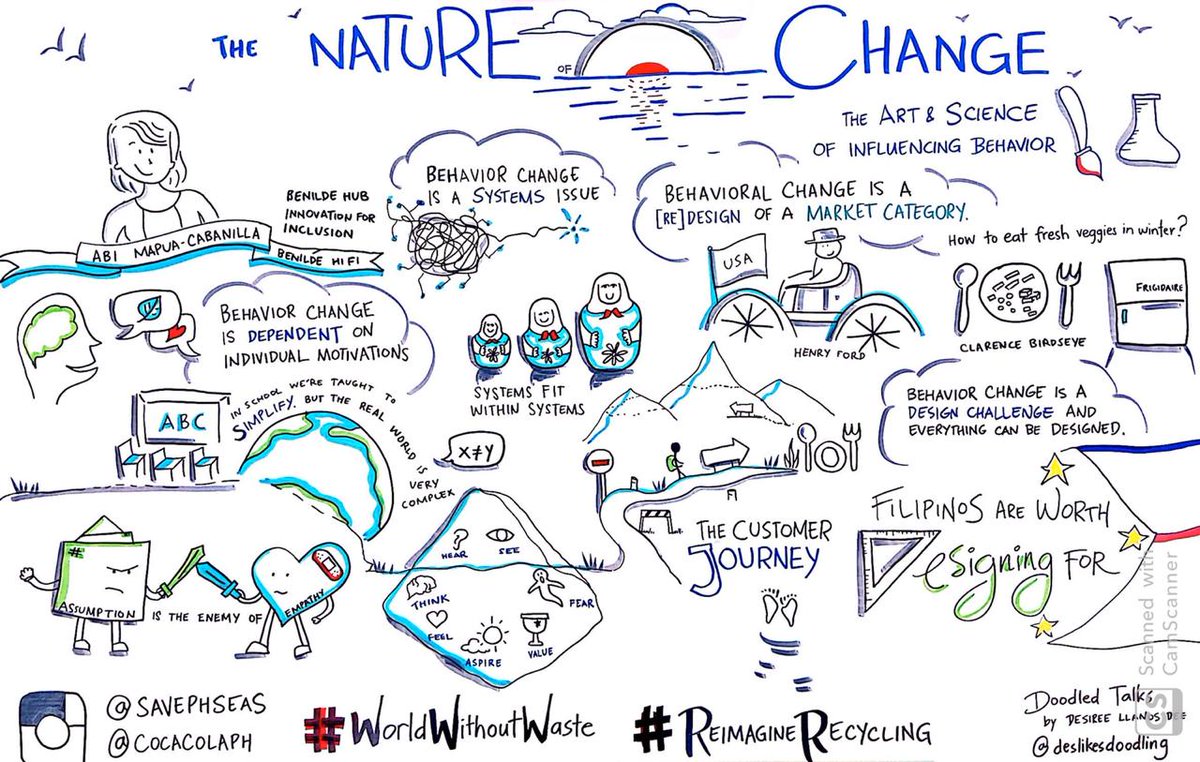 THE NATURE OF CHANGE
THE ART & SCIENCE
OF INFLUENCING BEHAVIOR
ABI MAPUA-CABANILLA
BENILDE HI FI
BENILDE HUB
INNOVATION FOR
INCLUSION
BEHAVIOR CHANGE
IS A SYSTEMS ISSUE
BEHAVIORAL CHANGE IS A
[RE]DESIGN OF A MARKET CATEGORY.
USA
HENRY FORD
HOW TO EAT FRESH VEGGIES IN WINTER?
FRIGIDAIRE
CLARENCE BIRDSEYE
BEHAVIOR CHANGE
IS DEPENDENT ON
INDIVIDUAL MOTIVATIONS
SYSTEMS FIT
WITHIN SYSTEMS
BEHAVIOR CHANGE IS A
DESIGN CHALLENGE AND
EVERYTHING CAN BE DESIGNED.
ABC
IN SCHOOL WE'RE TAUGHT TO
SIMPLIFY. BUT THE REAL WORLD IS
VERY
COMPLEX
X≠Y
HEAR
SEE
THINK
FEAR
FEEL
ASPIRE
VALUE
THE CUSTOMER
JOURNEY
FILIPINOS ARE WORTH
DESIGNING FOR
#
ASSUMPTION
IS THE ENEMY OF
EMPATHY
@SAVEPHSEAS
@COCACOLAPH
#WORLDWITHOUTWASTE
#REIMAGINERECYCLING
Doodled Talks
BY DESIREE LLANOS DEE
@deslikesdoodling
CS
Scanned with
CamScanner